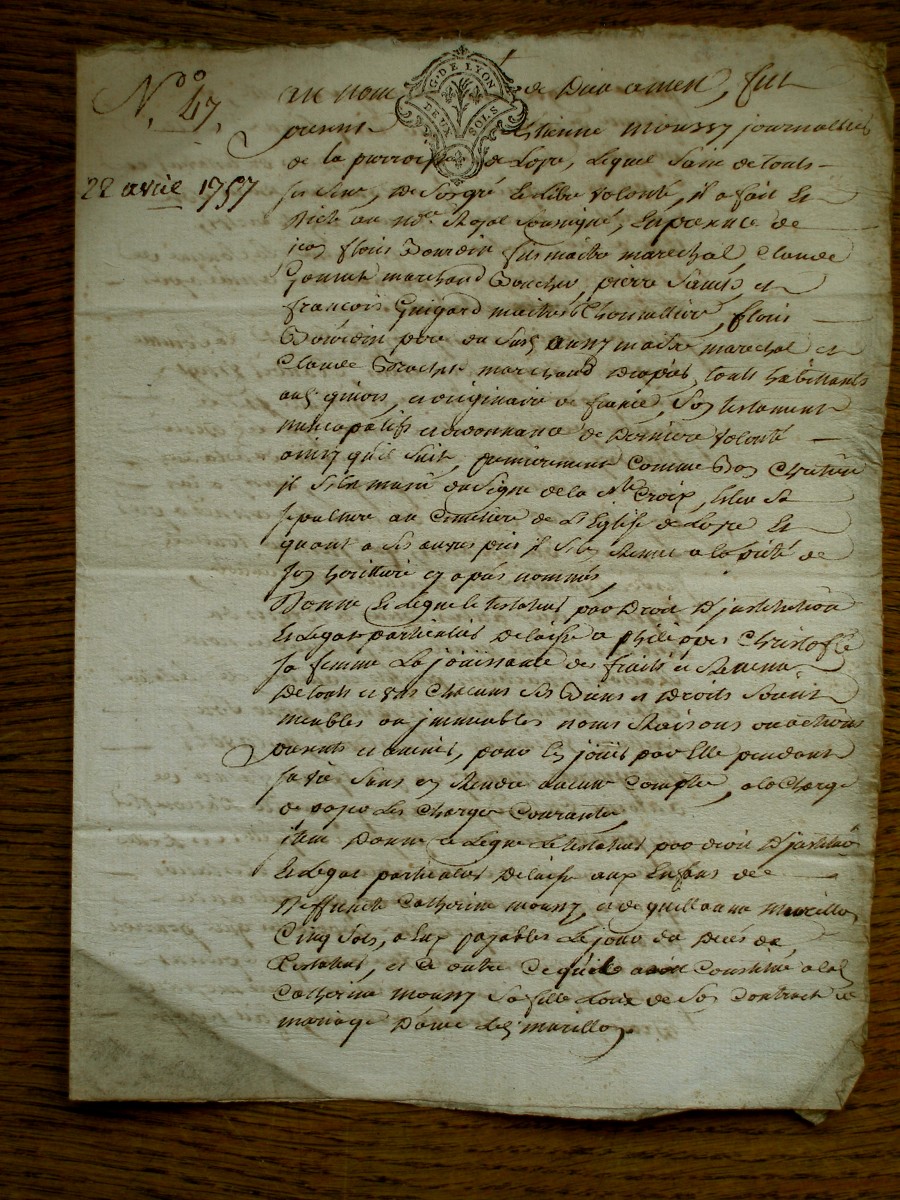 N.° 47,
22 avril 1757
G. DE LYON
DEUX SOLS
au nom de Dieu amen, fut
present Estienne moussy journallier
de la parroisse de Loyre, lequel sain de touts
ses sens, de son gré et libre volonté, il a fait et
dicté au no.re Royal soussigné, en presence de
floris Bourdin fils maitre marechal, Claude
marchand Boucher, pierre et
françois Guigard maitres floris
Bourdin pere du susd. aussy maitre marechal et
Claude marchand Drapier, touts habittants
aud. givors, et originaire de france, son testament
nuncupatifs et ordonnance de derniere volonté
ainsy qu'il suit, premierement comme bon Chretien
il s'est muni du signe de la s.te Croix, eslu sa
sepulture au cimetiere de l'Eglise de Loyre et
quant a ses œuvres pies il s'en remet a la pieté de
son herittiere cy apres nommés,
Donne et legue le testateur par droit d'institution
et legat particulier delaisse a philippes Christofle
sa femme la joüissance des fruits et revenu
de touts et uns chacuns ses biens et droits soient
meubles ou immeubles noms raisons ou actions
presents et avenirs, pour en joüir par elle pendant
sa vie sans en rendre aucun compte, a la charge
de payer les charges courantes,
item Donne et legue le testateur par droit d'institu.on
et legat particulier delaisse aux Enfans de
deffunte Catherine moussy, et de guillaume murillon
Cinq sols, a eux payables le jour du deces du
testateur, et ce outre ce qu'il avoit constitué a lad.
Catherine moussy sa fille lors de son contract de
mariage d'avec led. murillon,